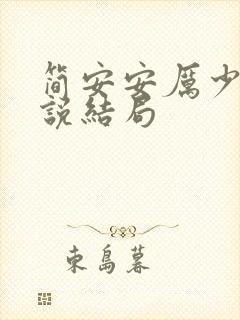 简安安厲少
說結局
東島暮